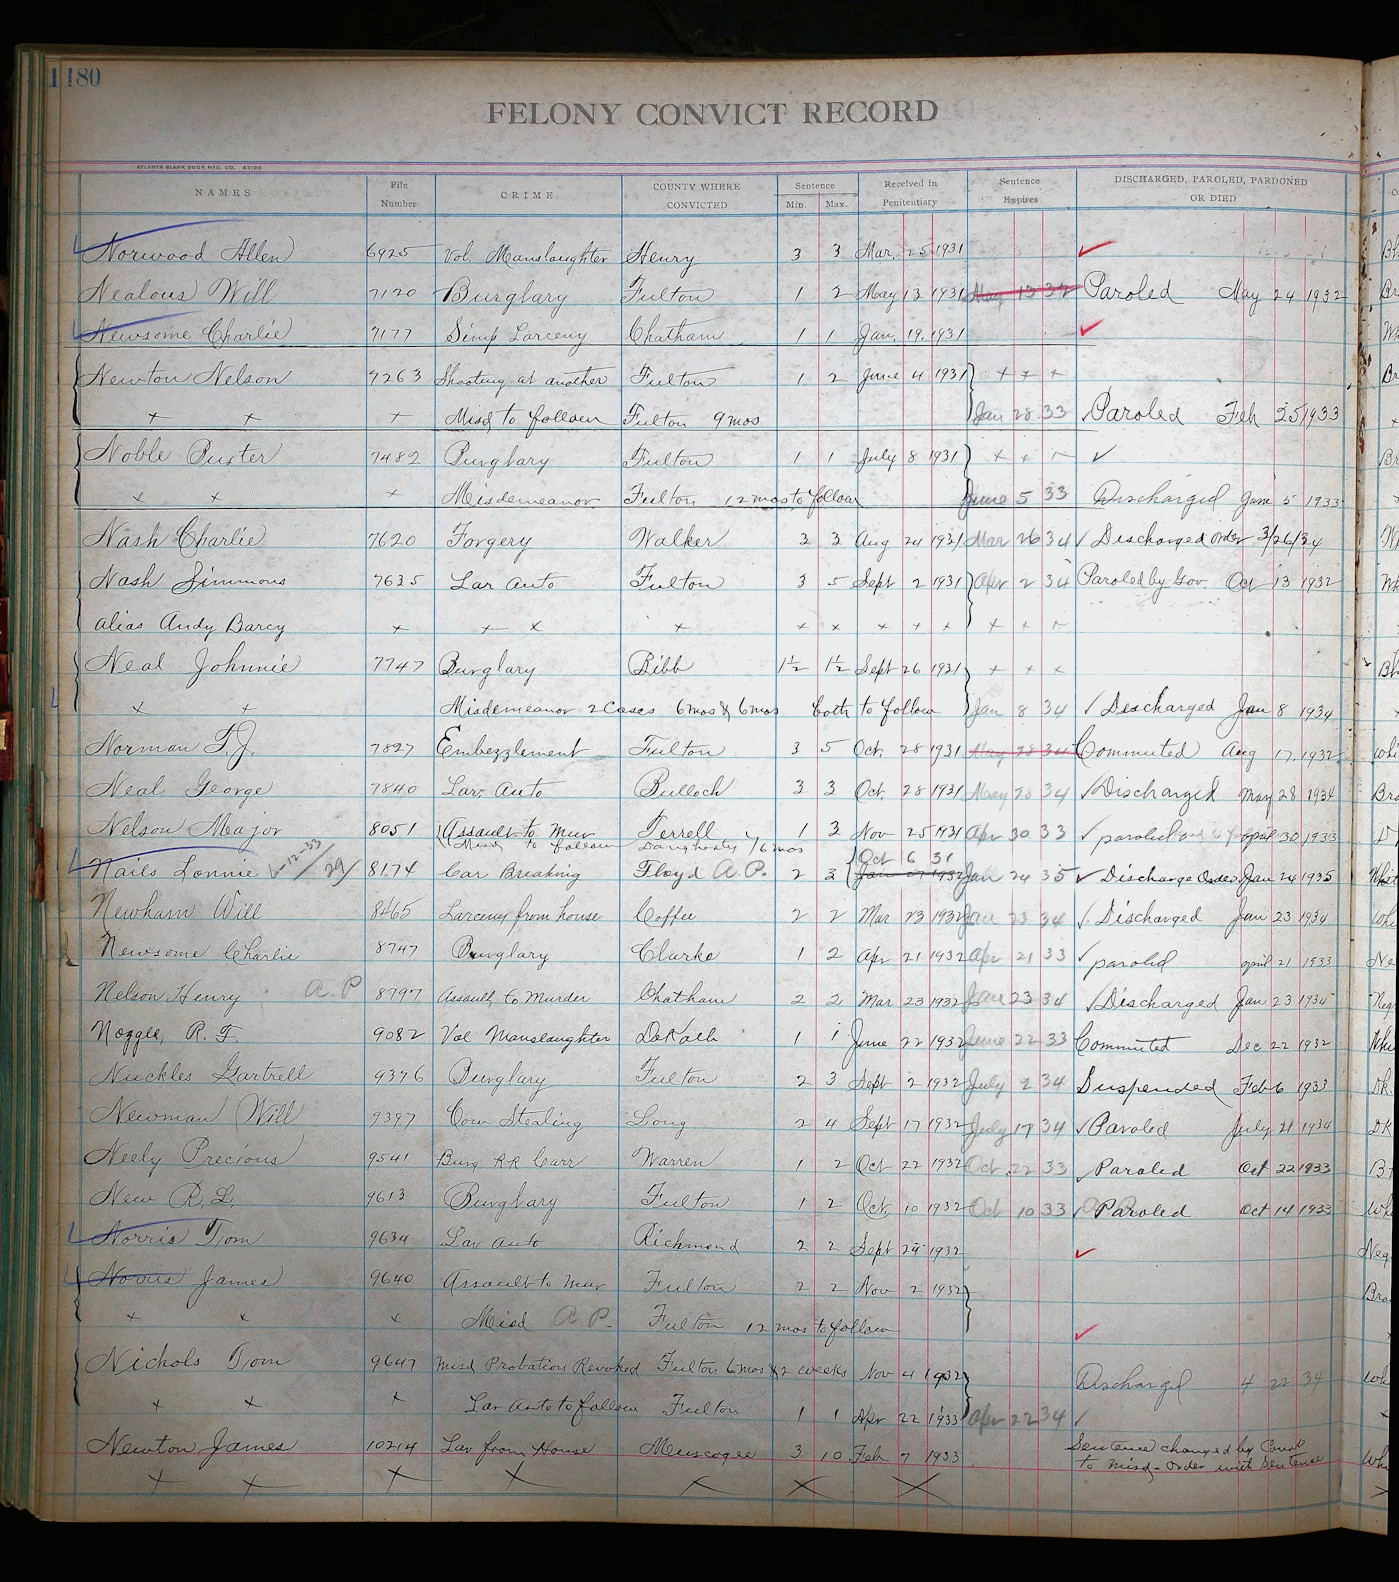 1180
FELONY CONVICT RECORD
ATLANTA BLANK BOOK MFG. CO. 43100
NAMES File Number CRIME COUNTY WHERE CONVICTED Sentence Min. Max. Received in Penitentiary Sentence Expires DISCHARGED, PAROLED, PARDONED OR DIED
Norwood Allen 6925 Vol. Manslaughter Henry 3 3 Mar. 25 1931 ✓
Nealous Will 7120 Burglary Fulton 1 2 May 13 1931 May 13 32 Paroled May 24 1932
Newsome Charlie 7177 Simp Larceny Chatham 1 1 Jan. 19. 1931 ✓
Newton Nelson 7263 Shooting at another Fulton 1 2 June 4 1931 + + +
+ + + Misd to follow Fulton 9 mos Jan 28 33 Paroled Feb 25 1933
Noble Buster 7482 Burglary Fulton 1 1 July 8 1931 + + + ✓
+ + + Misdemeanor Fulton 12 mos to follow June 5 33 Discharged June 5 1933
Nash Charlie 7620 Forgery Walker 3 3 Aug 24 1931 Mar 26 34 ✓ Discharged order 3/26/34
Nash Simmons 7635 Lar Auto Fulton 3 5 Sept 2 1931 Apr 2 34 Paroled by Gov. Oct 13 1932
alias Andy Barcy + + x + + x + + + + + +
Neal Johnnie 7747 Burglary Bibb 1½ 1½ Sept 26 1931 + + +
+ + Misdemeanor 2 Cases 6 mos & 6 mos both to follow Jan 8 34 ✓ Discharged Jan 8 1934
Norman T.J. 7827 Embezzlement Fulton 3 5 Oct. 28 1931 May 28 34 Commuted Aug 17. 1932
Neal George 7840 Lar. Auto Bulloch 3 3 Oct. 28 1931 May 28 34 ✓ Discharged May 28 1934
Nelson Major 8051 Assault to Mur Terrell 1 3 Nov 25 1931 Apr 30 33 ✓ paroled april 30 1933
Misd to follow Daugherty 6 mos
Oct 6 31
Nails Lonnie 6-12-33/29/ 8174 Car Breaking Floyd A.P. 2 3 Jan 1932 Jan 24 35 ✓ Discharge Order Jan 24 1935
Newham Will 8465 Larceny from house Coffee 2 2 Mar 23 1932 Jan 23 34 ✓ Discharged Jan 23 1934
Newsome Charlie 8747 Burglary Clarke 1 2 Apr 21 1932 Apr 21 33 ✓ parold april 21 1933
Nelson, Henry A.P 8797 Assault to Murder Chatham 2 2 Mar 23 1932 Jan 23 34 ✓ Discharged Jan 23 1934
Noggle, R. F. 9082 Vol Manslaughter DeKalb 1 1 June 22 1932 June 22 33 Commuted Dec 22 1932
Nuckles Gartrell 9376 Burglary Fulton 2 3 Sept 2 1932 July 2 34 Suspended Feb 6 1933
Newman Will 9397 Cow Stealing Long 2 4 Sept 17 1932 July 17 34 ✓ Paroled July 21 1934
Neely Precious 9541 Burg RR Carr Warren 1 2 Oct 22 1932 Oct. 22 33 Paroled Oct 22 1933
New R.L. 9613 Burglary Fulton 1 2 Oct. 10 1932 Oct 10 33 ✓ Paroled Oct 14 1933
Norris Tom 9634 Lar Auto Richmond 2 2 Sept 29 1932 ✓
Norris James 9640 Assault to Mur Fulton 2 2 Nov 2 1932
+ + + Misd A P. Fulton 12 mos to follow ✓
Nichols Tom 9647 Misd Probation Revoked Fulton 6 mos & 2 weeks Nov 4 1932 Discharged 4 22 34
+ + + Lar Auto to follow Fulton 1 1 Apr 22 1933 Apr 22 34 ✓
Newton James 10214 Lar from House Muscogee 3 10 Feb 7 1933 Sentence changed by Court
to misd - order with Sentence
+ + + x + x x